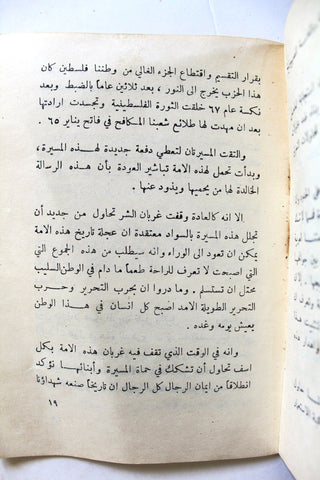 بقرار التقسيم واقتطاع الجزء الغالي من وطننا فلسطين كان
هذا الحزب يخرج الى النور ، بعد ثلاثين عاماً بالضبط وبعد
نكسة عام ٦٧ خلقت الثورة الفلسطينية وتجسدت ارادتها
بعد ان مهدت لها طلائع شعبنا المكافح في فاتح يناير ٦٥ .
والتقت المسيرتان لتعطي دفعة جديدة لهذه المسيرة ،
وبدأت تحمل لهذه الامة تباشير العودة بأن هذه الرسالة
الخالدة لها من يحميها ويذود عنها .
الا انه كالعادة وقفت غربان الشر تحاول من جديد ان
تجلل هذه المسيرة بالسواد معتقدة ان عجلة تاريخ هذه الامة
يمكن ان تعود الى الوراء وانه سيطلب من هذه الجموع التي
التي اصبحت لا تعرف للراحة طعماً ما دام في الوطن السليب
محتل ان تستسلم . وما دروا ان بحرب التحرير وحرب
التحرير الطويلة الامد اصبح كل انسان في هذا الوطن
يعيش يومه وغده .
وانه في الوقت الذي تقف فيه غربان هذه الامة بكل
اسف تحاول أن تشكك في حماة المسيرة وأبنائها نؤكد
انطلاقاً من ايمان الرجال كل الرجال ان تاريخاً صنعه شهداؤنا
١٩